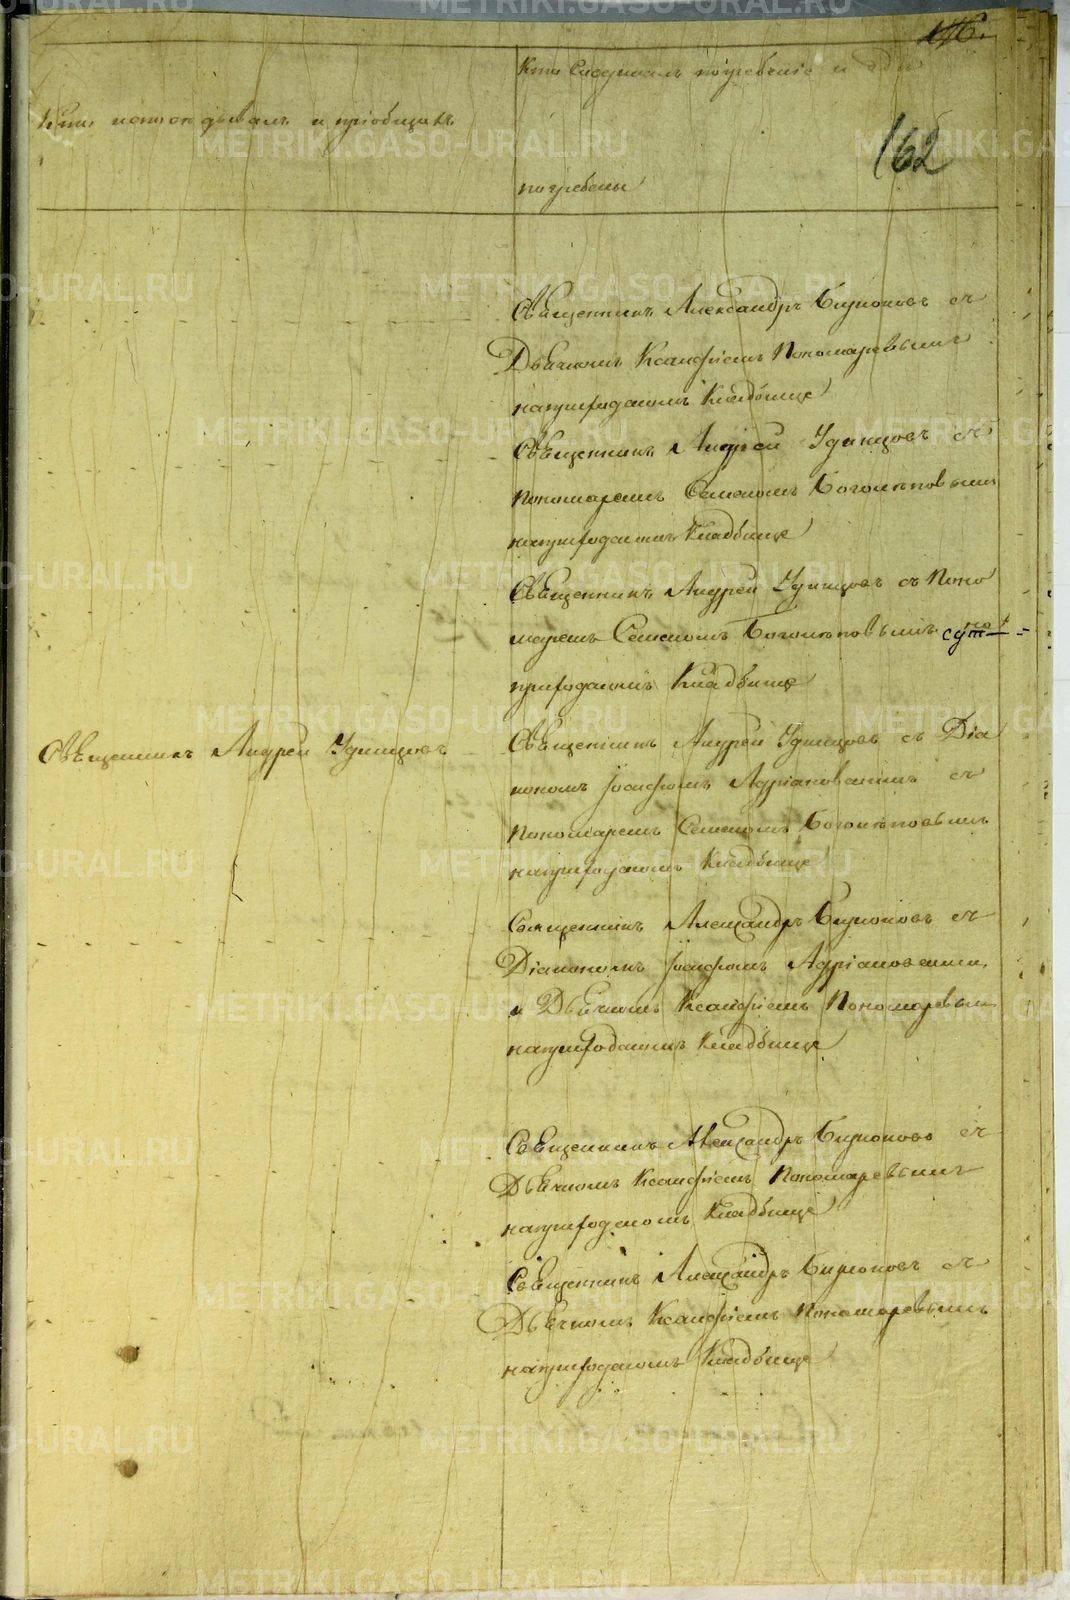 162
Кто исповѣдывалъ и пріобщилъ
Кто Совершалъ погребеніе и гдѣ
погребены
Священникъ Александръ Бирюковъ съ
Дьячкомъ Ксанфіемъ Пономаревымъ
наприходскомъ Кладбище
Священникъ Андрей Удинцовъ съ
пономаремъ Семеномъ Боголѣповымъ
наприходскомъ Кладбище
Священникъ Андрей Удинцовъ съ Поно
маремъ Семеномъ Боголѣповымъ
приходскомъ Кладбище
Священникъ Андрей Удинцовъ
Священникъ Андрей Удинцовъ съ Діа
кономъ Іосифомъ Адріановскимъ съ
Пономаремъ Семеномъ Боголѣповымъ
наприходскомъ Кладбище
Священникъ Александръ Бирюковъ съ
Діакономъ Іосифомъ Адріановскимъ
и Дьячкомъ Ксанфіемъ Пономаревым
наприходскомъ Кладбище
Священникъ Александръ Бирюковъ съ
Дьячкомъ Ксанфіемъ Пономаревымъ
наприходскомъ Кладбище
Священникъ Александръ Бирюковъ съ
Дьячкомъ Ксанфіемъ Пономаревымъ
наприходскомъ Кладбище
METRIKI.GASO-URAL.RU